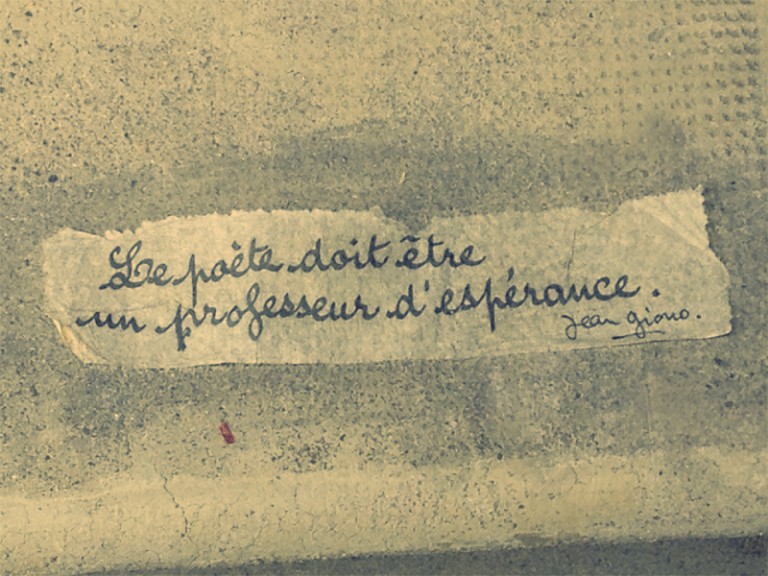 Le poète doit être
un professeur d'espérance.
Jean Giono.